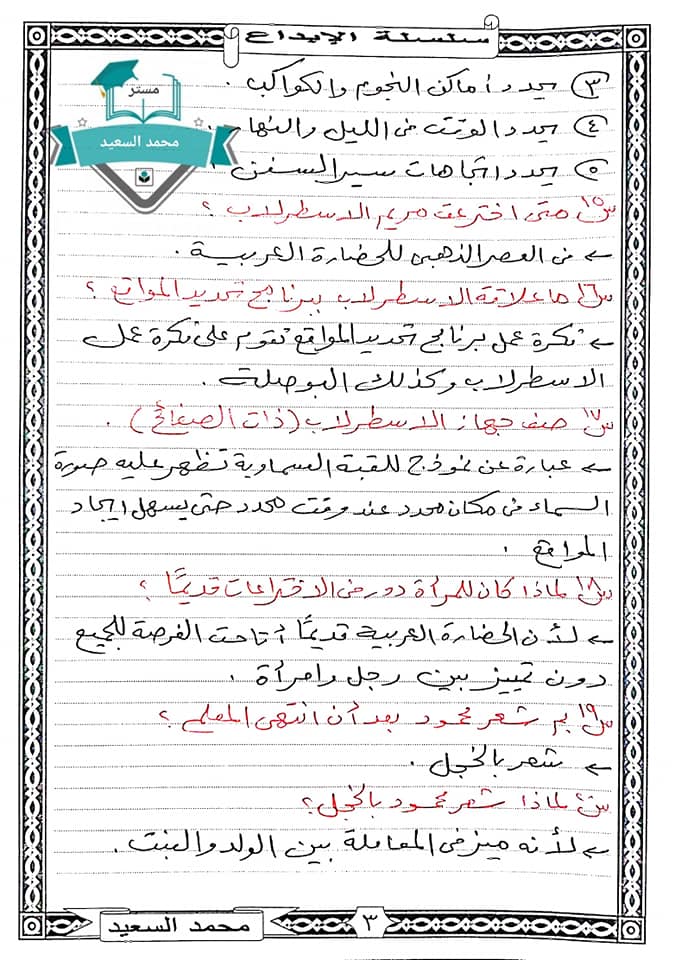 سلسلة الإبداع
مستر
محمد السعيد
٣ يحدد أماكن النجوم والكواكب .
٤ يحدد الوقت فى الليل والنها
٥ يحدد اتجاهات سير السفن .
س١٥ متى اخترعت مريم الاسطرلاب ؟
← فى العصر الذهبى للحضارة العربية .
س١٦ ما علاقة الاسطرلاب ببرنامج تحديد المواقع ؟
← فكرة عمل برنامج تحديد المواقع تقوم على فكرة عمل
الاسطرلاب وكذلك البوصلة .
س١٧ صف جهاز الاسطرلاب (ذات الصفائح) .
← عبارة عن نموذج للقبة السماوية تظهر عليه صورة
السماء فى مكان محدد عند وقت محدد حتى يسهل ايجاد
المواقع .
س١٨ لماذا كان للمرأة دور فى الاختراعات قديمًا ؟
← لأن الحضارة العربية قديمًا أتاحت الفرصة للجميع
دون تمييز بين رجل وامرأة .
س١٩ بم شعر محمود بعد أن انتهى المعلم ؟
← شعر بالخجل .
س٢٠ لماذا شعر محمود بالخجل ؟
← لأنه ميز فى المعاملة بين الولد والبنت .
محمد السعيد
٣